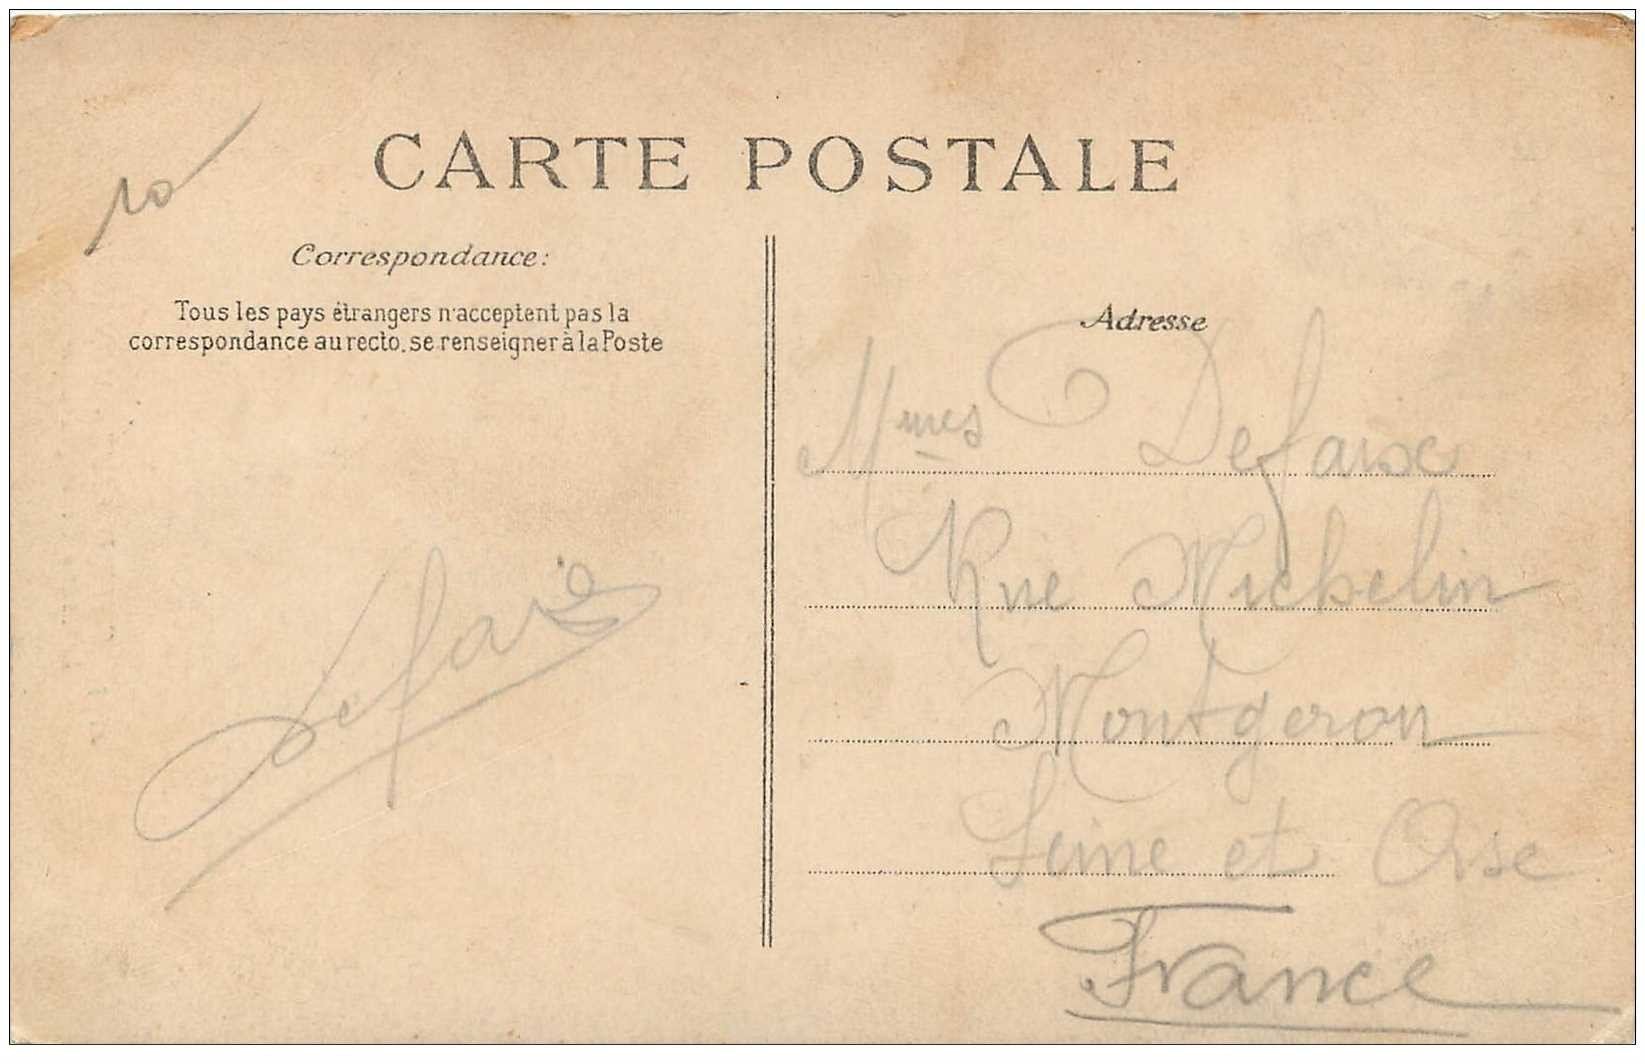 10
CARTE POSTALE
Correspondance:
Tous les pays étrangers n'acceptent pas la
correspondance au recto, se renseigner à la Poste
Defaix
Adresse
Mmes Defaix
Rue Michelin
Montgeron
Seine et Oise
France